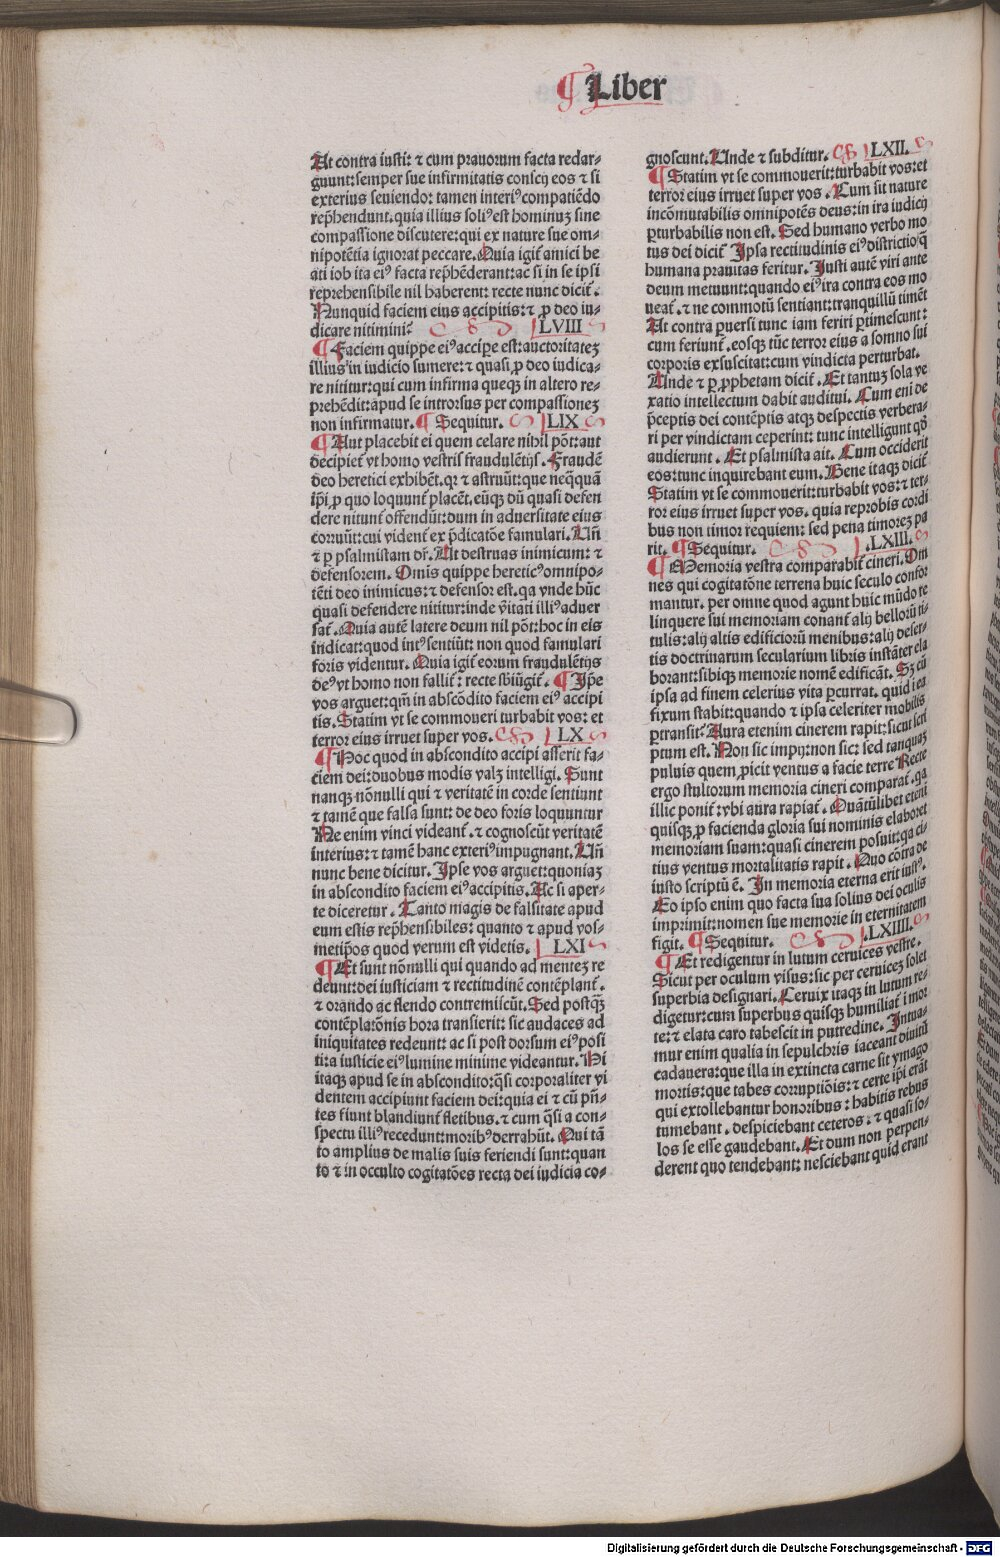 ¶ Liber
At contra iusti: ⁊ cum prauorum facta redar-
guunt: semper sue infirmitatis conscij eos ⁊ si
exterius seuiendo: tamen interiꝰ compatiẽdo
rep̃hendunt. quia illius soliꝰ est hominuꝫ sine
compassione discutere: qui ex nature sue om-
nipotẽtia ignorat peccare. Quia igit̃ amici be
ati iob ita eiꝰ facta rep̃hẽderant: ac si in se ipsi
reprehensibile nil haberent: recte nunc dicit̃.
Nunquid faciem eius accipitis: ⁊ ꝓ deo iu-
dicare nitimini? LVIII
¶ Faciem quippe eiꝰ accipere est: auctoritateꝫ
illius in iudicio sumere: ⁊ quasi ꝓ deo iudica-
re nititur: qui cum infirma queqꝫ in altero re-
prehẽdit: apud se introrsus per compassioneꝫ
non infirmatur. ¶ Sequitur. LIX
¶ Aut placebit ei quem celare nihil põt: aut
decipiet̃ vt homo vestris fraudulẽtijs. Fraudẽ
deo heretici exhibẽt. qꝛ ⁊ astruũt: que neq̃quã
ip̃i ꝓ quo loquunt̃ placẽt. eũqꝫ dũ quasi defen
dere nitunt̃ offendũt: dum in aduersitate eius
corruũt: cui vident̃ ex p̃dicatõe famulari. Uñ
⁊ ꝑ psalmistam dr̃. Ut destruas inimicum: ⁊
defensorem. Omis quippe hereticꝰ omnipo-
tẽti deo inimicus: ⁊ defensor est. qa vnde hũc
quasi defendere nititur: inde v̾itati illiꝰ aduer
sat̃. Quia autẽ latere deum nil põt: hoc in eis
indicat: quod intꝰ sentiũt: non quod famulari
foris videntur. Quia igit̃ eorum fraudulẽtijs
deꝰ vt homo non fallit̃: recte sb̃iũgit̃. ¶ Ip̃e
vos arguet: qm̃ in abscõdito faciem eiꝰ accipi
tis. Statim vt se commoueri turbabit vos: et
terror eius irruet super vos. LX
¶ Hoc quod in abscondito accipi asserit fa-
ciem dei: duobus modis valꝫ intelligi. Sunt
nanqꝫ nõnulli qui ⁊ veritatẽ in corde sentiunt
⁊ tamẽ que falsa sunt: de deo foris loquuntur
Ne enim vinci videant̃. ⁊ cognoscũt veritatẽ
interius: ⁊ tamẽ hanc exteriꝰ impugnant. Uñ
nunc bene dicitur. Ipse vos arguet: quoniaꝫ
in abscondito faciem eiꝰ accipitis. Ac si aper-
te diceretur. Tanto magis de falsitate apud
eum estis rep̃hensibiles: quanto ⁊ apud vos-
metip̃os quod verum est videtis. LXI
¶ Et sunt nõnulli qui quando ad menteꝫ re
deunt: dei iusticiam ⁊ rectitudinẽ contẽplant̃.
⁊ orando ac flendo contremiscũt. Sed postq̃ꝫ
contẽplatõnis hora transierit: sic audaces ad
iniquitates redeunt: ac si post dorsum eiꝰ posi
ti: a iusticie eiꝰ lumine minime videantur. Hi
itaqꝫ apud se in abscondito: q̃si corporaliter vi
dentem accipiunt faciem dei: quia ei ⁊ cũ p̃ñ-
tes fiunt blandiunt̃ fletibus. ⁊ cum q̃si a con-
spectu illiꝰ recedunt: moribꝰ derrahũt. Qui tã
to amplius de malis suis feriendi sunt: quan
to ⁊ in occulto cogitatões recta dei iudicia co-
gnoscunt. Unde ⁊ subditur. LXII.
¶ Statim vt se commouerit: turbabit vos: et
terror eius irruet super vos. Cum sit nature
incõmutabilis omnipotẽs deus: in ira iudicij
ꝑturbabilis non est. Sed humano verbo mo
tus dei dicit̃ Ipsa rectitudinis eiꝰ districtio: q̃
humana prauitas feritur. Iusti autẽ viri ante
deum metuunt: quando eiꝰ ira contra eos mo
ueat̃. ⁊ ne commotũ sentiant: tranquillũ timẽt
At contra ꝑuersi tunc iam feriri ꝑtimescunt:
cum feriunt̃. eosqꝫ tũc terror eius a somno sui
corporis exsuscitat: cum vindicta perturbat.
Unde ⁊ ꝑ ꝓphetam dicit̃. Et tantuꝫ sola ve
xatio intellectum dabit auditui. Cum eni de
p̃ceptis dei contẽptis atqꝫ despectis verbera-
ri per vindictam ceperint: tunc intelligunt qd̃
audierunt. Et psalmista ait. Cum occiderit
eos: tunc inquirebant eum. Bene itaqꝫ dicit̃
Statim vt se commouerit: turbabit vos: ⁊ ter-
ror eius irruet super vos. quia reprobis cordi
bus non timor requiem: sed pena timoreꝫ pa
rit. ¶ Sequitur. .LXIII.
¶ Memoria vestra comparabit̃ cineri. Om
nes qui cogitatõne terrena huic seculo confor
mantur. per omne quod agunt huic mũdo re
linquere sui memoriam conant̃ alij bellorũ ti-
tulis: alij altis edificiorũ menibus: alij deser-
tis doctrinarum secularium libris instãter ela
borant: sibiqꝫ memorie nomẽ edificãt. Sꝫ cũ
ipsa ad finem celerius vita ꝑcurrat. quid i ea
fixum stabit: quando ⁊ ipsa celeriter mobilis
ꝑtransit? Aura etenim cinerem rapit: sicut scri
ptum est. Non sic impij: non sic: sed tanquaꝫ
puluis quem ꝓicit ventus a facie terre Recte
ergo stultorum memoria cineri comparat̃. qa
illic ponit̃: vbi aura rapiat̃. Quãtũlibet eteni
quisqꝫ ꝓ facienda gloria sui nominis elaboret
memoriam suam: quasi cinerem posuit: qa ci-
tius ventus mortalitatis rapit. Quo cõtra de
iusto scriptũ ẽ. In memoria eterna erit iustꝰ.
Eo ipso enim quo facta sua solius dei oculis
imprimit: nomen sue memorie in eternitatem
figit. ¶ Sequitur. .LXIIII.
¶ Et redigentur in lutum ceruices vestre.
Sicut per oculum visus: sic per ceruiceꝫ solet
superbia designari. Ceruix itaqꝫ in lutum re-
digetur: cum superbus quisqꝫ humiliat̃ ĩ mor
te: ⁊ elata caro tabescit in putredine. Intua-
mur enim qualia in sepulchris iaceant diuitũ
cadauera: que illa in extincta carne sit ymago
mortis: que tabes corruptiõis: ⁊ certe ip̃i erãt
qui extollebantur honoribus: habitis rebus
tumebant. despiciebant ceteros: ⁊ quasi so-
los se esse gaudebant. Et dum non perpen-
derent quo tendebant: nesciebant quid erant
Digitalisierung gefördert durch die Deutsche Forschungsgemeinschaft - DFG